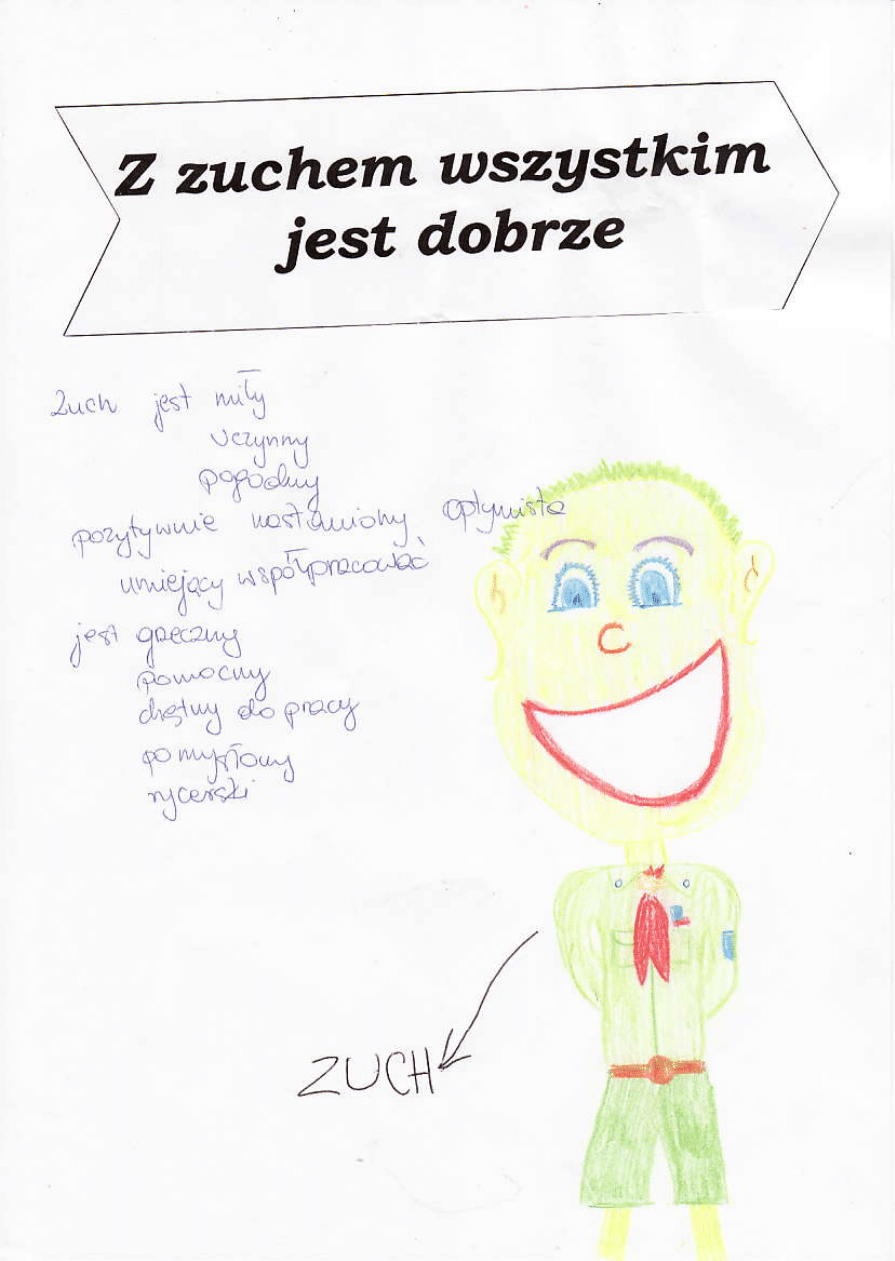 Z zuchem wszystkim
jest dobrze
Zuch jest miły
uczynny
pogodny
pozytywnie nastawiony, optymista
umiejący współpracować
jest grzeczny
pomocny
chętny do pracy
pomysłowy
rycerski
ZUCH